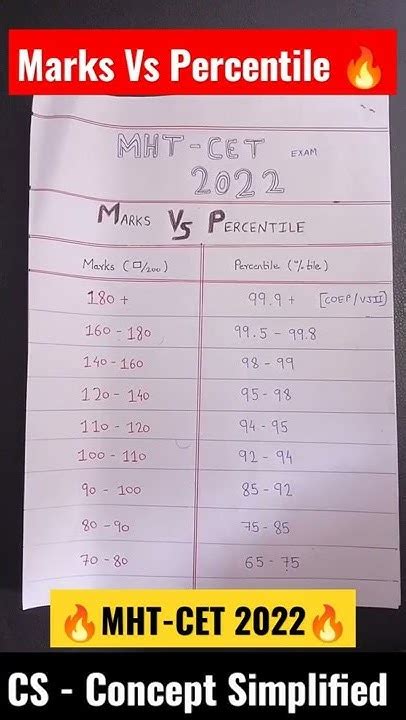 Marks Vs Percentile 🔥
MHT-CET EXAM
2022
MARKS VS PERCENTILE
Marks (□/200) Percentile (%tile)
180 + 99.9 + [COEP/VJTI]
160 - 180 99.5 - 99.8
140 - 160 98 - 99
120 - 140 95 - 98
110 - 120 94 - 95
100 - 110 92 - 94
90 - 100 85 - 92
80 - 90 75 - 85
70 - 80 65 - 75
🔥MHT-CET 2022🔥
CS - Concept Simplified